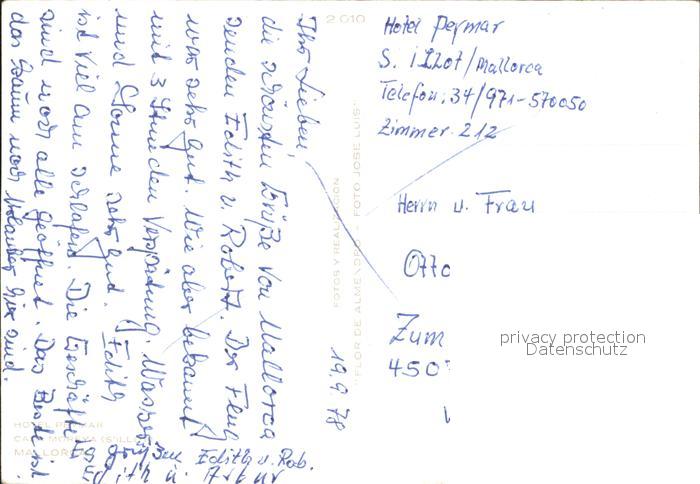 2.010
Hotel Peymar
S. illot/Mallorca
Telefon: 34/971-570050
Zimmer 212
Herrn u. Frau
Otto
Zum
450
privacy protection
Datenschutz
Ihr Lieben,
die schönsten Grüße von Mallorca
senden Edith u. Robert. Der Flug
war sehr gut. Wie aber bekannt
mit 3 Stunden Verspätung. Wasser
und Sonne sehr gut. Edith
ist viel am schlafen. Die Geschäfte
sind noch alle geöffnet. Das Beste ist
das dann noch Urlauber hier sind.
Es grüßen Edith u. Rob.
Edith u.
19.9.78
FOTOS Y REALIZACION
"FLOR DE ALMENDRO" - FOTO JOSE LUIS"
HOTEL PEYMAR
MALLORCA